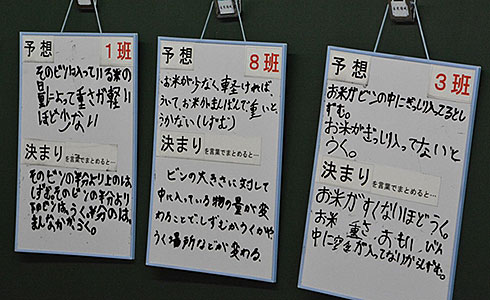 予想
1班
そのビンに入っている米の
量によって重さが軽い
ほど少ない
決まり を言葉でまとめると…
そのビンの半分より上のは、
しずむ。そのビンの半分より
下のビンは、うく。半分のは、
まんなかがうく。
予想
8班
・お米が少なく軽ければ、
ういて、お米がまんぱんで重いと
うかない(しずむ)
決まり を言葉でまとめると…
ビンの大きさに対して
中に入っている物の量が変
わることでしずむかうくかや、
うく場所などが変わる。
予想
3班
お米がビンの中にぎっしり入ってるとし
ずむ。
お米がぎっしり入ってないと
うく。
決まり を言葉でまとめると…
お米がすくないほどうく。
お米 重さ おもい
中に空気が入ってない